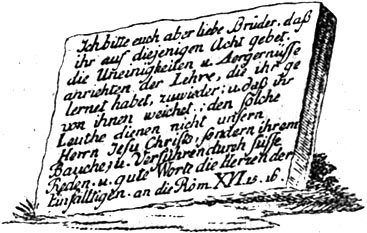 Ich bitte euch aber liebe Brüder, daß
ihr auf diejenigen Acht gebet,
die Uneinigkeiten u. Aergernüsse
anrichten der Lehre, die ihr ge
lernet habet, zuwieder; u. daß ihr
von ihnen weichet; den solche
Leuthe dienen nicht unsern
Herrn Jesu Christo, sondern ihrem
Bauche; u. Verführen durch süsse
Reden u. gute Worte die Herzen der
Einfältigen. an die Röm XVI. 15. 16.